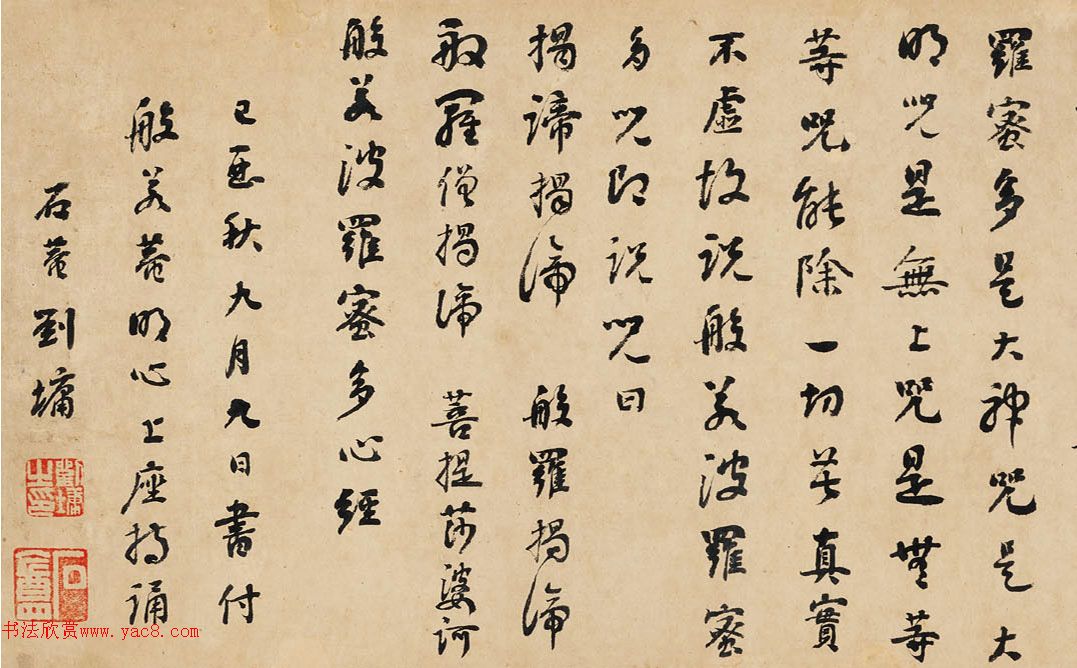 羅蜜多是大神咒是大
明咒是無上咒是無等
等咒能除一切苦真實
不虛故說般若波羅蜜
多咒即說咒曰
揭諦揭諦 般羅揭諦
般羅僧揭諦 菩提莎婆訶
般若波羅蜜多心經
己酉秋九月九日書付
般若菴明心上座持誦
石菴劉墉
劉墉之印
石菴
书法欣赏www.yac8.com